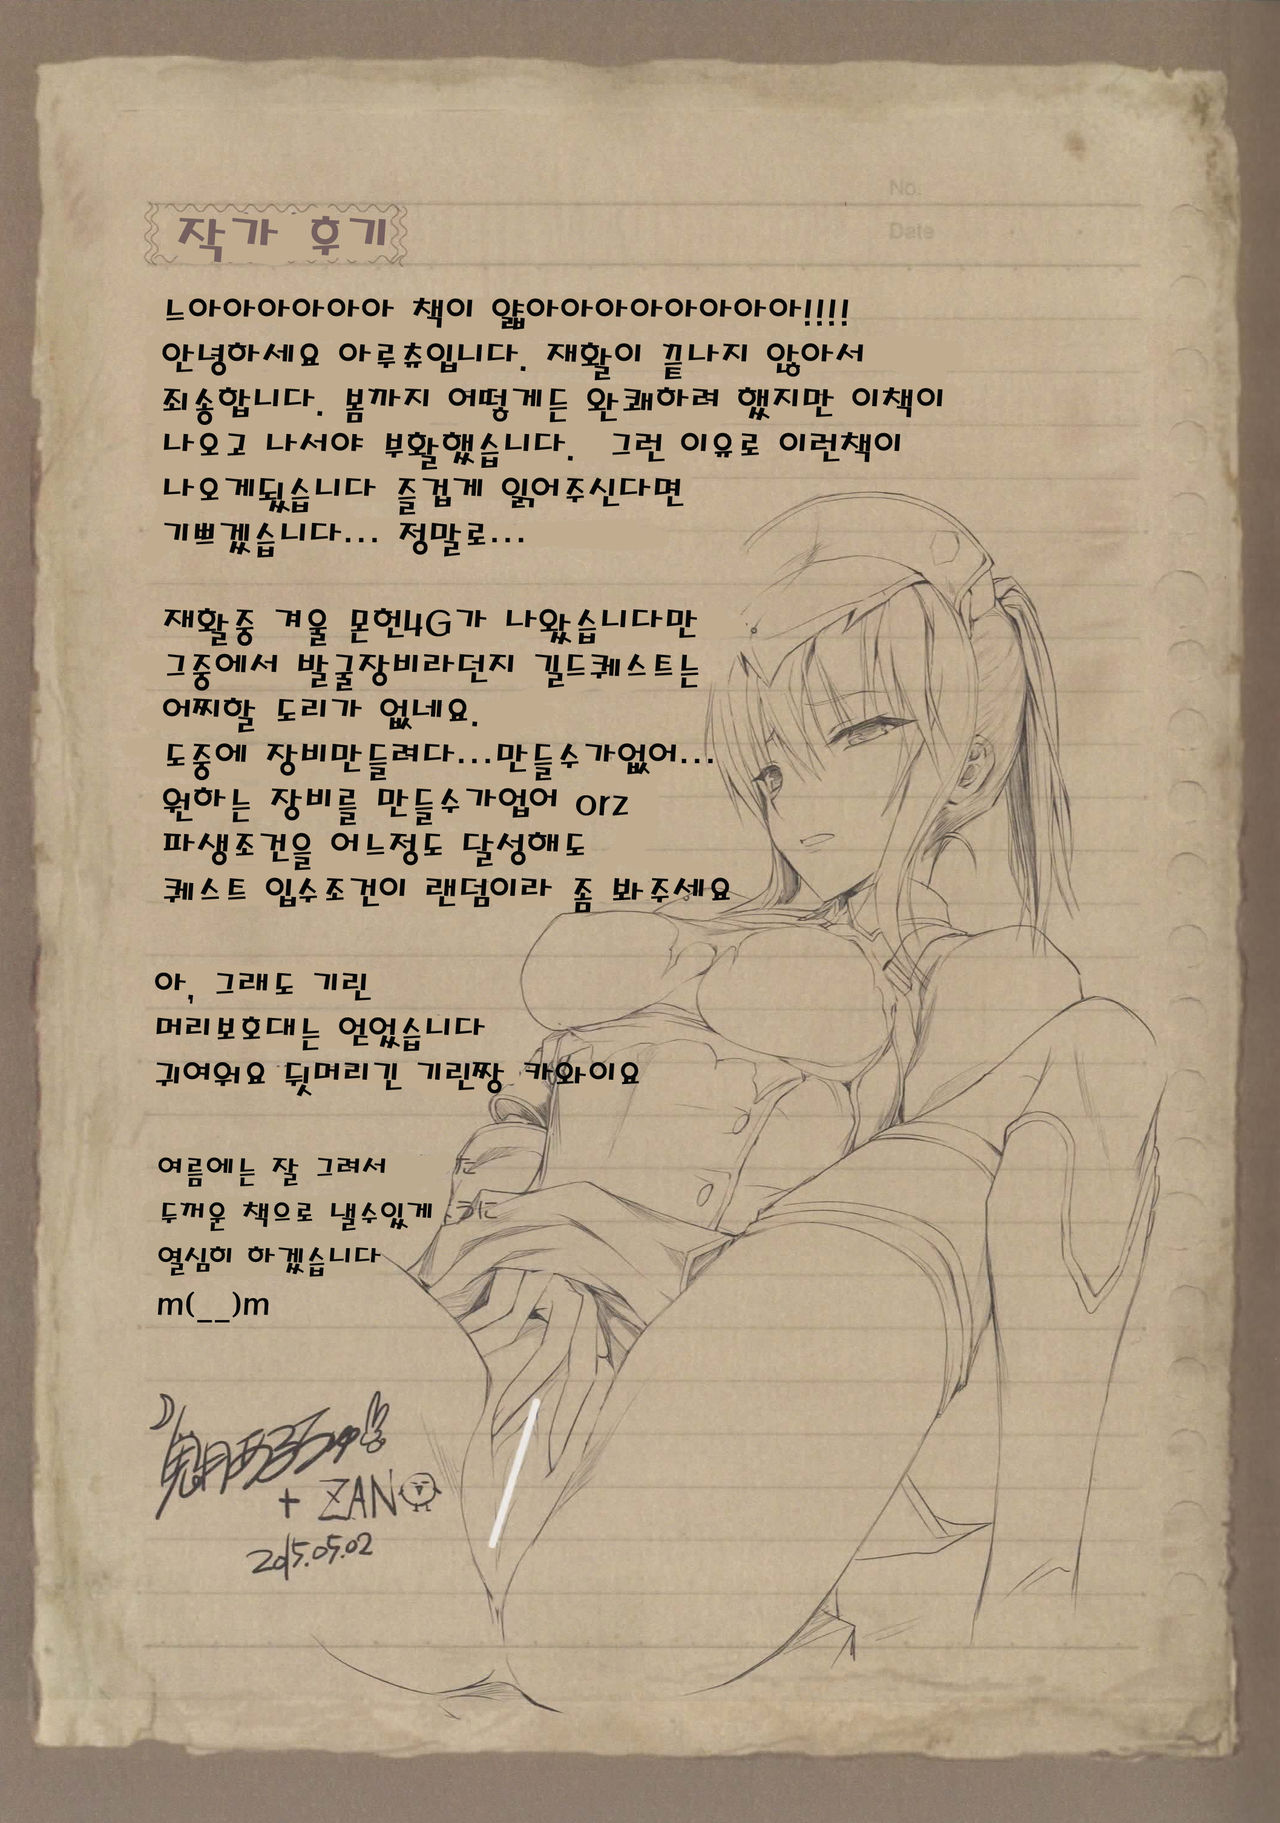 No.
Date
작가 후기
느아아아아아아 책이 얇아아아아아아아아아!!!!
안녕하세요 아루츄입니다. 재활이 끝나지 않아서
죄송합니다. 봄까지 어떻게든 완쾌하려 했지만 이책이
나오고 나서야 부활했습니다. 그런 이유로 이런책이
나오게됬습니다 즐겁게 읽어주신다면
기쁘겠습니다... 정말로...
재활중 겨울 몬헌4G가 나왔습니다만
그중에서 발굴장비라던지 길드퀘스트는
어찌할 도리가 없네요.
도중에 장비만들려다...만들수가없어...
원하는 장비를 만들수가업어 orz
파생조건을 어느정도 달성해도
퀘스트 입수조건이 랜덤이라 좀 봐주세요
아, 그래도 기린
머리보호대는 얻었습니다
귀여워요 뒷머리긴 기린짱 카와이요
여름에는 잘 그려서
두꺼운 책으로 낼수있게
열심히 하겠습니다
m(__)m
鬼月あるちゅ
+ ZAN
2015.05.02